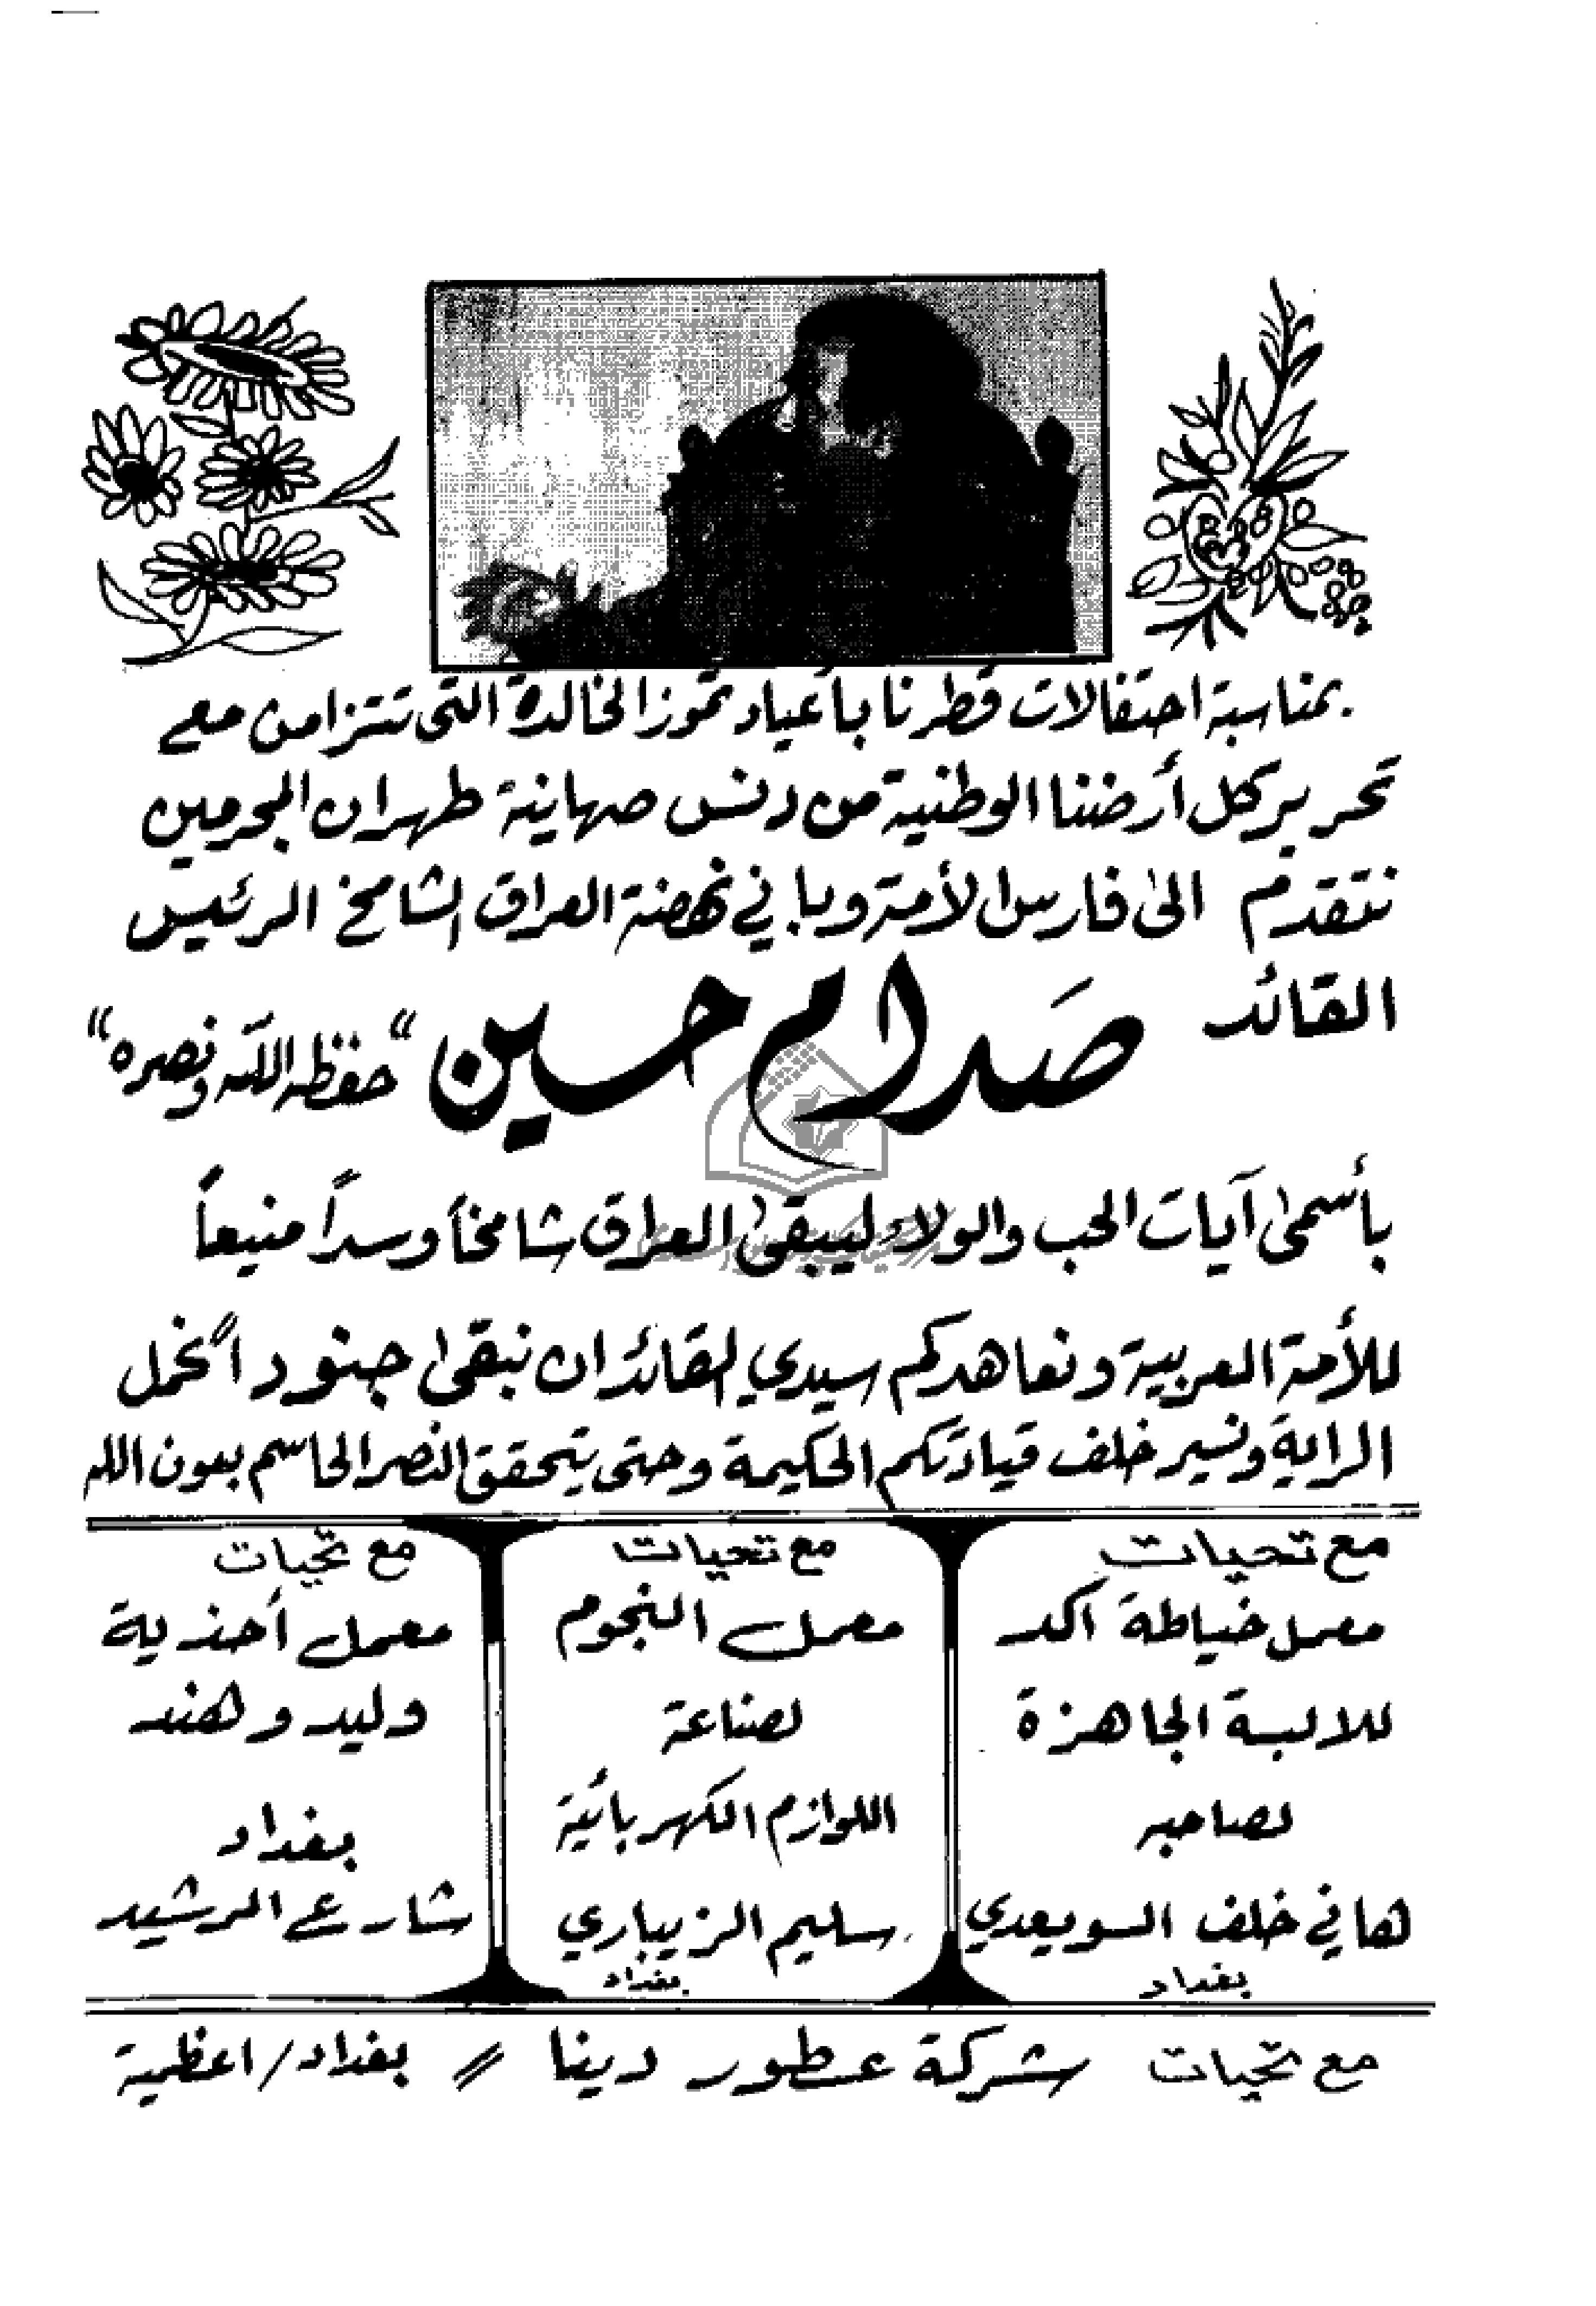 بمناسبة احتفالات قطرنا بأعياد تموز الخالدة التي تتزامن مع
تحرير كل أرضنا الوطنية من دنس صهاينة طهران المجرمين
نتقدم الى فارس الأمة وباني نهضة العراق الشامخ الرئيس
القائد صدام حسين "حفظه الله ونصره"
بأسمى آيات الحب والولاء ليبقى العراق شامخاً وسداً منيعاً
للأمة العربية ونعاهدكم سيدي القائد ان نبقى جنوداً نحمل
الراية ونسير خلف قيادتكم الحكيمة وحتى يتحقق النصر الحاسم بعون الله
مع تحيات
معمل خياطة اكد
للالبسة الجاهزة
لصاحبه
هاني خلف السويعدي
بغداد
مع تحيات
معمل النجوم
لصناعة
اللوازم الكهربائية
سليم الزيباري
بغداد
مع تحيات
معمل أحذية
وليد وهند
بغداد
شارع الرشيد
مع تحيات شركة عطور دينا // بغداد/اعظمية